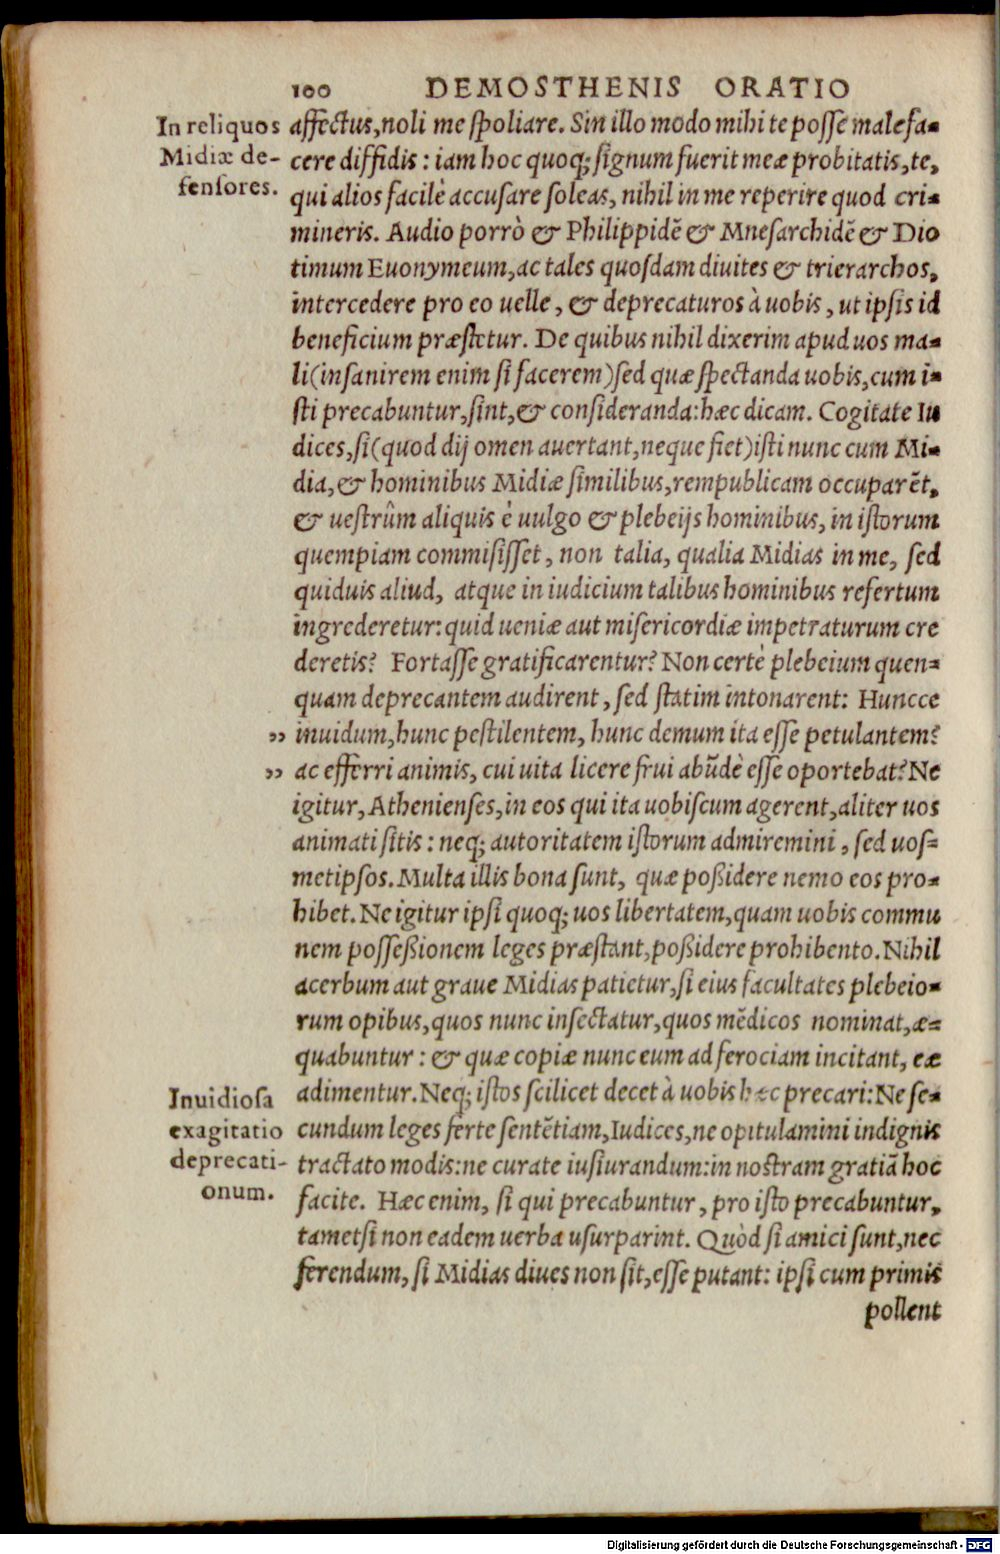 100 DEMOSTHENIS ORATIO
In reliquos
Midiæ de-
fensores.
affectus, noli me spoliare. Sin illo modo mihi te posse malefa-
cere diffidis: iam hoc quoq; signum fuerit meæ probitatis, te,
qui alios facilè accusare soleas, nihil in me reperire quod cri-
mineris. Audio porrò & Philippidẽ & Mnesarchidẽ & Dio
timum Euonymeum, ac tales quosdam diuites & trierarchos,
intercedere pro eo uelle, & deprecaturos à uobis, ut ipsis id
beneficium præstetur. De quibus nihil dixerim apud uos ma-
li (insanirem enim si facerem) sed quæ spectanda uobis, cum i-
sti precabuntur, sint, & consideranda: hæc dicam. Cogitate Iu
dices, si (quod dij omen auertant, neque fiet) isti nunc cum Mi-
dia, & hominibus Midiæ similibus, rempublicam occuparẽt,
& uestrûm aliquis è uulgo & plebeijs hominibus, in istorum
quempiam commisisset, non talia, qualia Midias in me, sed
quiduis aliud, atque in iudicium talibus hominibus refertum
ingrederetur: quid ueniæ aut misericordiæ impetraturum cre
deretis? Fortasse gratificarentur? Non certè plebeium quen-
quam deprecantem audirent, sed statim intonarent: Huncce
” inuidum, hunc pestilentem, hunc demum ita esse petulantem?
” ac efferri animis, cui uita licere frui abũdè esse oportebat? Ne
igitur, Athenienses, in eos qui ita uobiscum agerent, aliter uos
animati sitis: neq; autoritatem istorum admiremini, sed uos-
metipsos. Multa illis bona sunt, quæ poßidere nemo eos pro-
hibet. Ne igitur ipsi quoq; uos libertatem, quam uobis commu
nem posseßionem leges præstant, poßidere prohibento. Nihil
acerbum aut graue Midias patietur, si eius facultates plebeio-
rum opibus, quos nunc insectatur, quos mẽdicos nominat, æ-
quabuntur: & quæ copiæ nunc eum ad ferociam incitant, eæ
adimentur. Neq; istos scilicet decet à uobis hæc precari: Ne se-
cundum leges ferte sentẽtiam, Iudices, ne opitulamini indignis
tractato modis: ne curate iusiurandum: in nostram gratiã hoc
facite. Hæc enim, si qui precabuntur, pro isto precabuntur,
tametsi non eadem uerba usurparint. Quòd si amici sunt, nec
ferendum, si Midias diues non sit, esse putant: ipsi cum primis
pollent
Inuidiosa
exagitatio
deprecati-
onum.
Digitalisierung gefördert durch die Deutsche Forschungsgemeinschaft - DFG